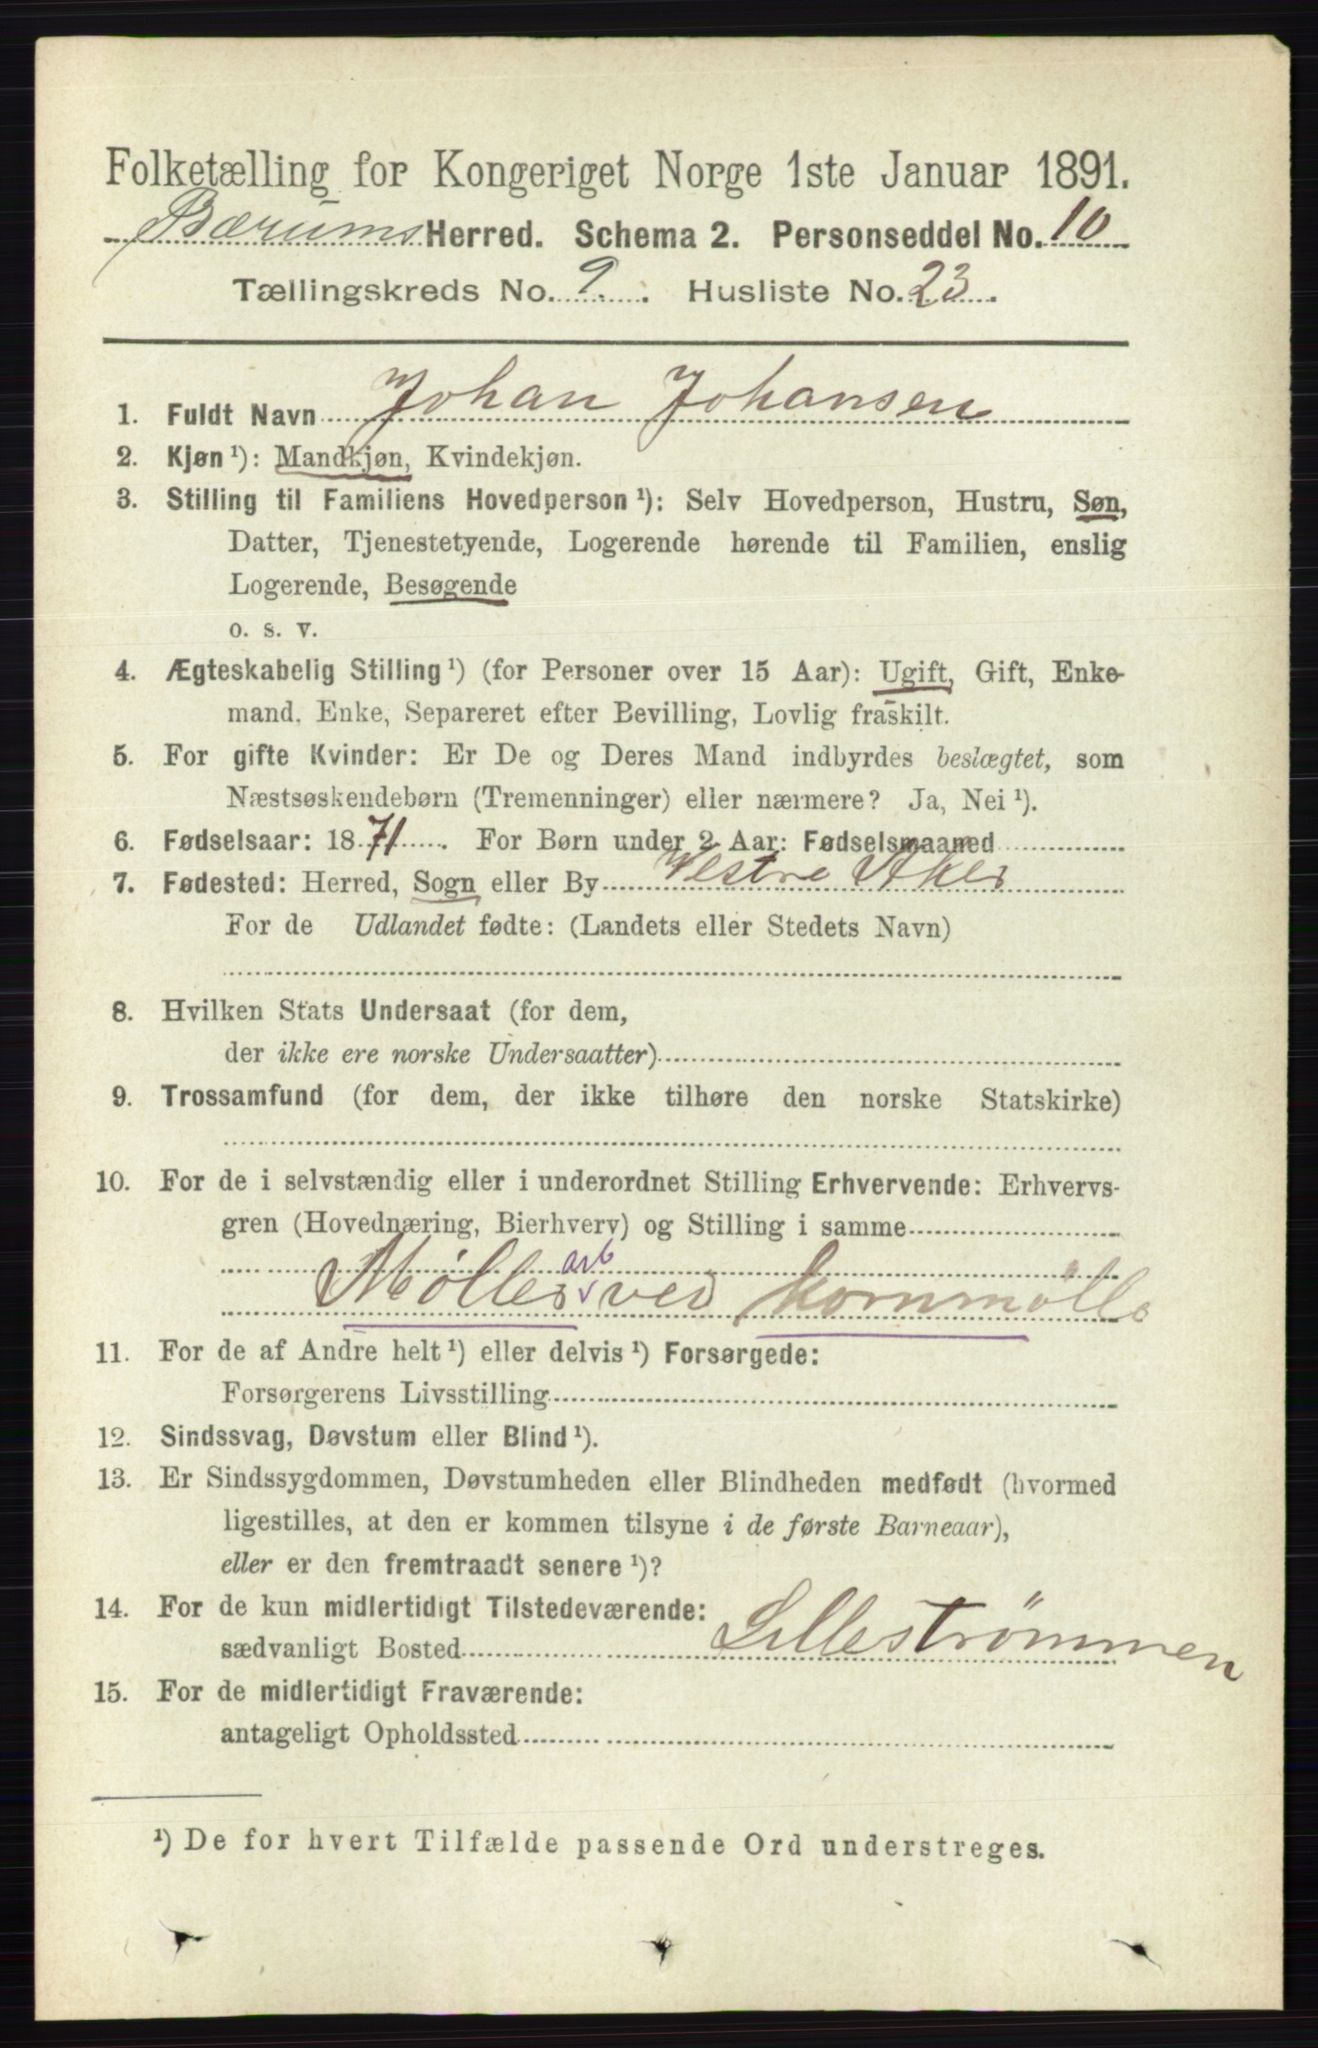 Folketælling for Kongeriget Norge 1ste Januar 1891.
Bærums Herred. Schema 2. Personseddel No. 10
Tællingskreds No. 9. Husliste No. 23.
1. Fuldt Navn Johan Johansen
2. Kjøn ¹): Mandkjøn, Kvindekjøn.
3. Stilling til Familiens Hovedperson ¹): Selv Hovedperson, Hustru, Søn,
Datter, Tjenestetyende, Logerende hørende til Familien, enslig
Logerende, Besøgende
o. s. v.
4. Ægteskabelig Stilling ¹) (for Personer over 15 Aar): Ugift, Gift, Enke-
mand, Enke, Separeret efter Bevilling, Lovlig fraskilt.
5. For gifte Kvinder: Er De og Deres Mand indbyrdes beslægtet, som
Næstsøskendebørn (Tremenninger) eller nærmere? Ja, Nei ¹).
6. Fødselsaar: 1871. For Børn under 2 Aar: Fødselsmaaned
7. Fødested: Herred, Sogn eller By Vestre Aker
For de Udlandet fødte: (Landets eller Stedets Navn)
8. Hvilken Stats Undersaat (for dem,
der ikke ere norske Undersaatter)
9. Trossamfund (for dem, der ikke tilhøre den norske Statskirke)
10. For de i selvstændig eller i underordnet Stilling Erhvervende: Erhvervs-
gren (Hovednæring, Bierhverv) og Stilling i samme
arb
Møller ved kornmølle
11. For de af Andre helt ¹) eller delvis ¹) Forsørgede:
Forsørgerens Livsstilling
12. Sindssvag, Døvstum eller Blind ¹).
13. Er Sindssygdommen, Døvstumheden eller Blindheden medfødt (hvormed
ligestilles, at den er kommen tilsyne i de første Barneaar),
eller er den fremtraadt senere ¹)?
14. For de kun midlertidigt Tilstedeværende:
sædvanligt Bosted Lillestrømmen
15. For de midlertidigt Fraværende:
antageligt Opholdssted
¹) De for hvert Tilfælde passende Ord understreges.